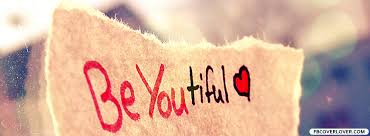 Be Youtiful
FBCOVERLOVER.COM